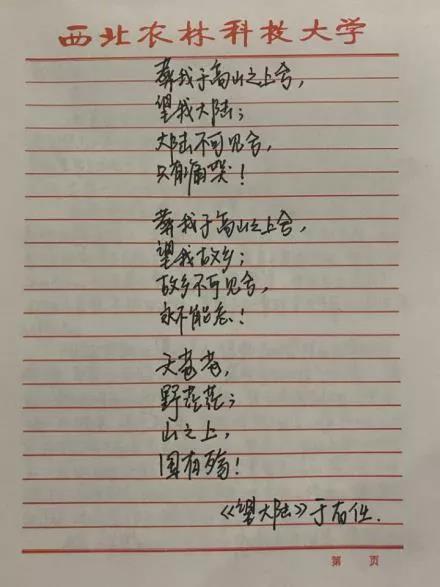 西北农林科技大学
葬我于高山之上兮,
望我大陆;
大陆不可见兮,
只有痛哭!
葬我于高山之上兮,
望我故乡;
故乡不可见兮,
永不能忘!
天苍苍,
野茫茫;
山之上,
国有殇!
《望大陆》于右任.
第 页